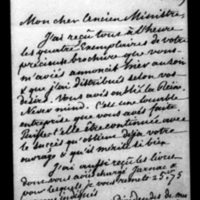 Mon cher Ancien Ministre,
J'ai reçu tous à l'heure
les quatre Exemplaires de votre
précieuse brochure que vous
m'aviez annoncée hier au soir
et que j'ai distribués selon vos
désirs. Vous avez oublié la
Never mind. C'est une bonne
entreprise que vous avez faite
Puisse-t-elle être continuée avec
le succès qu'obtient déjà votre
ouvrage et qu'il mérite si bien
J'ai aussi reçu les livres
dont vous avez chargé
pour lesquels je vous remets